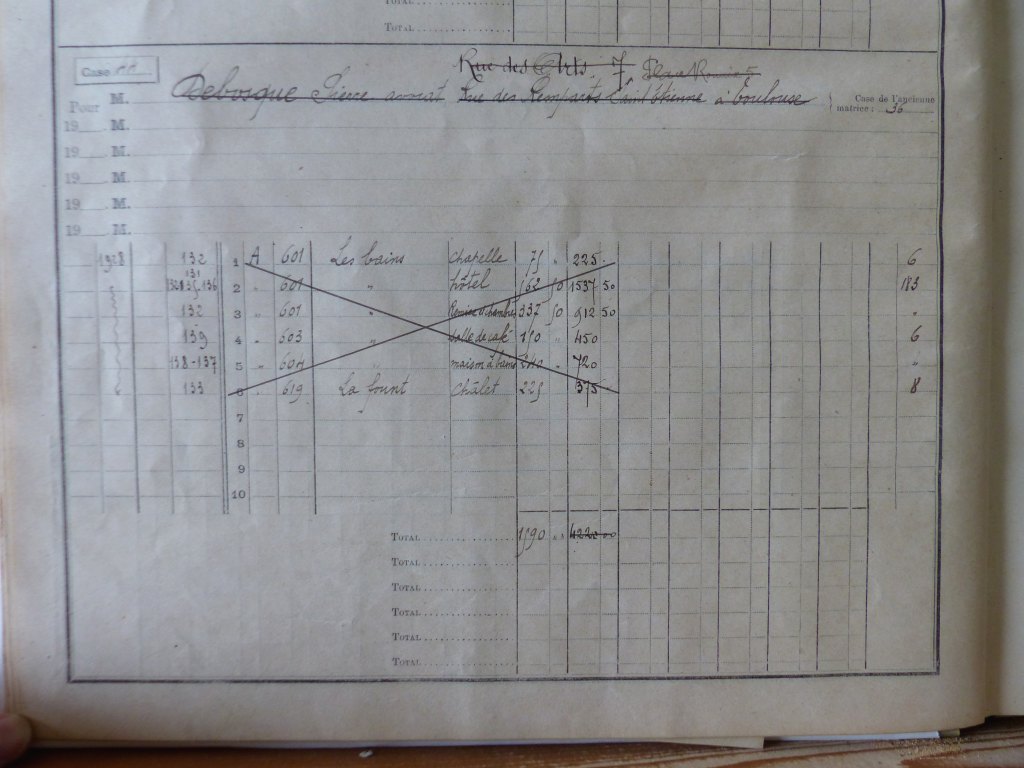 Total
Total
Rue des Arts 7,
Case 11
Debosque Pierre avocat Rue des Remparts Saint Etienne à Toulouse
Case de l'ancienne
Pour M.
matrice : 36
19 M.
19 M.
19 M.
19 M.
19 M.
1928 132 1 A 601 Les bains Chapelle 75 " 225 6
2 " 601 " hôtel 562 50 1537 50 183
132 3 " 601 " 337 50 912 50 "
139 4 " 603 " Salle de café 150 " 450 6
138-137 5 " 604 " maison à bains 240 " 720 "
133 6 " 619 La fount Châlet 225 375 8
7
8
9
10
Total 1590 " " 4220 00
Total
Total
Total
Total
Total